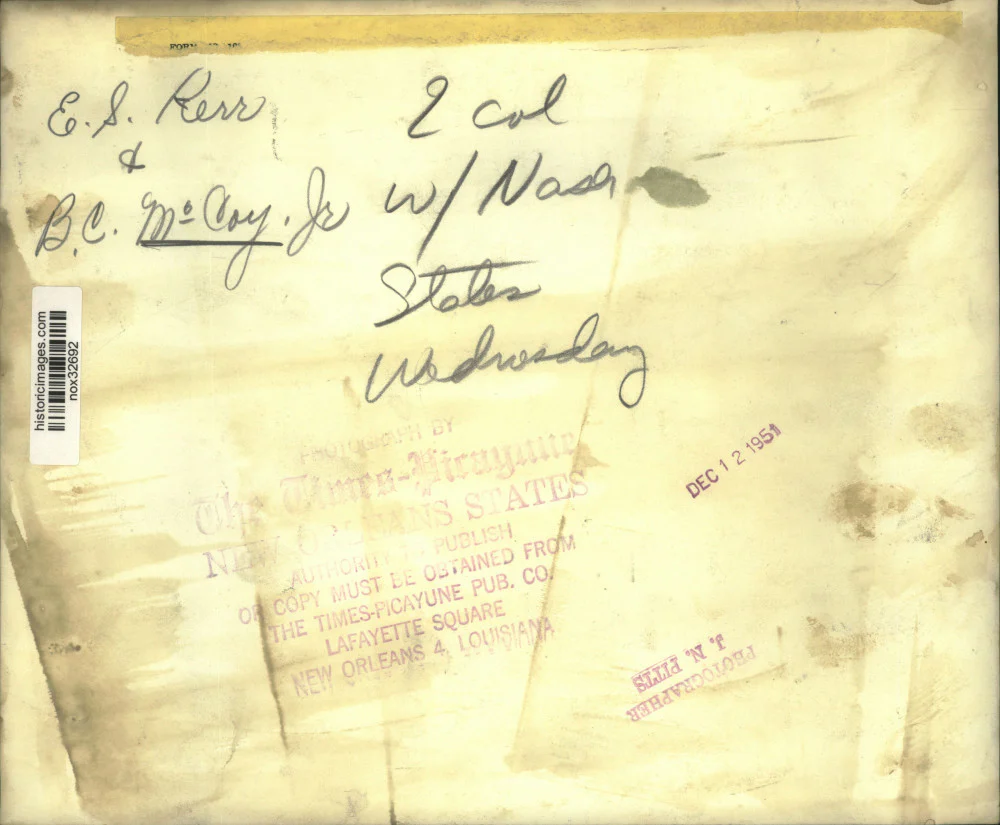 E.S. Kerr
&
B.C. McCoy. Jr
2 col
w/ Nash
States
Wednesday
historicimages.com
nox32692
PHOTOGRAPH BY
The Times-Picayune
NEW ORLEANS STATES
AUTHORITY TO PUBLISH
OR COPY MUST BE OBTAINED FROM
THE TIMES-PICAYUNE PUB. CO.
LAFAYETTE SQUARE
NEW ORLEANS 4, LOUISIANA
DEC 12 1951
PHOTOGRAPHER
J. N. PITTS